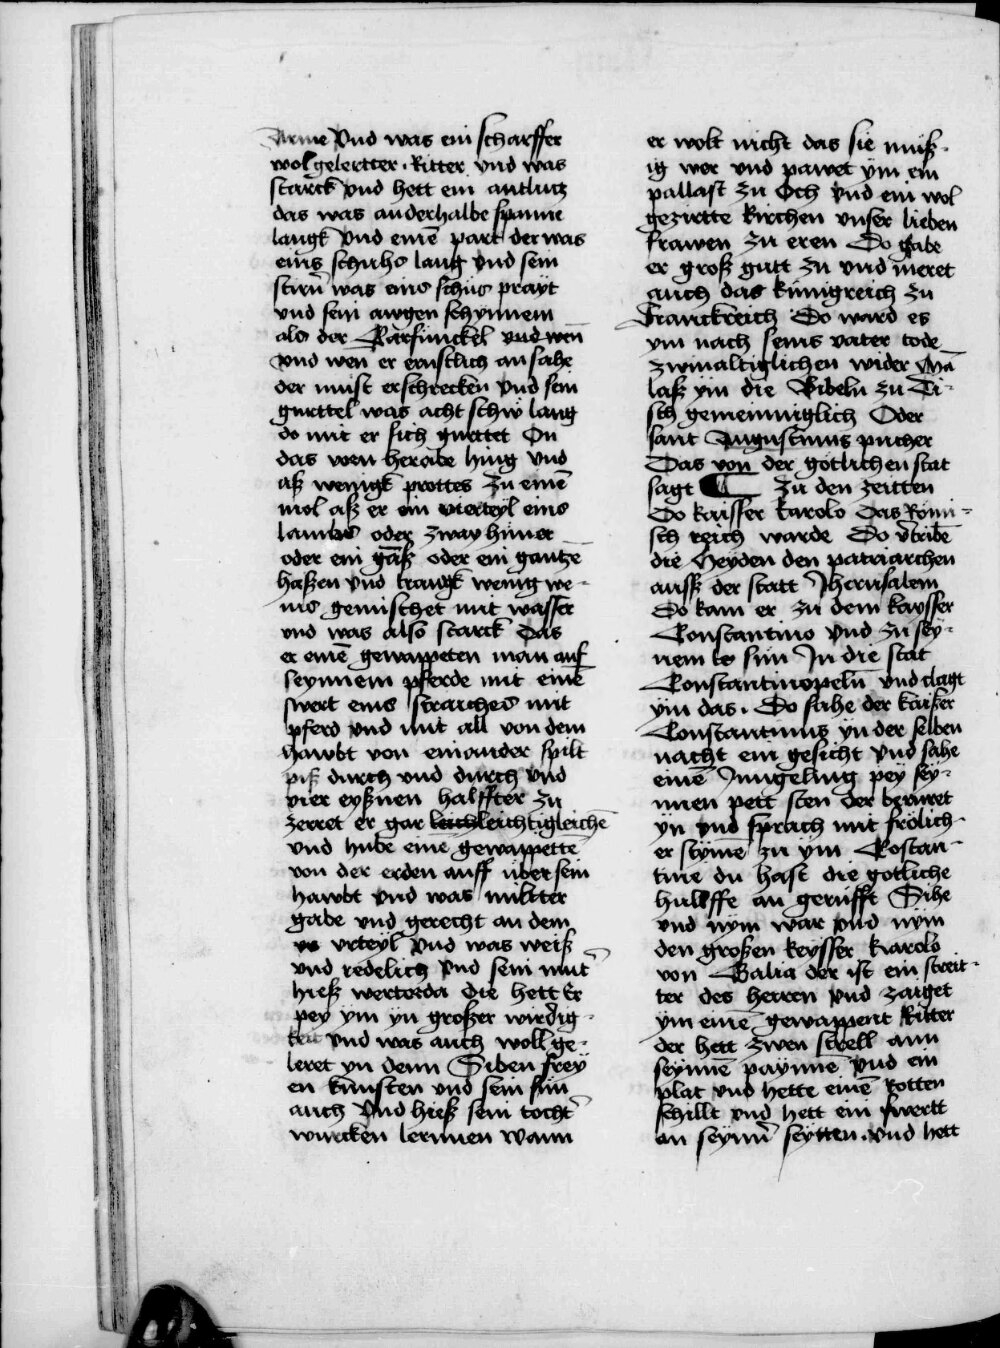 Arme Vnd was ein scharffer
wol gelertter · Ritter vnd was
starck vnd hett ein antlutz
das was anderhalbe spanne
langk vnd einē part der was
eins schuhs lang vnd sein
stirn̄ was eins schus prayt
vnd sein awgen schynnem
als der Carfunckel vnd wen̄
vnd wen er ernstlich an sahe
der must erschrecken vnd sein
gurttel was acht schw lang
do mit er sich gurttet On
das wen herabe hing vnd
aß wenigk prottes zu einē
mol aß er ein vierteyl eins
lambs oder zway hüner
oder ein gāß oder ein gantzē
haßen vnd tranngk wenig we-
ins gemischet mit wasser
vnd was also starck Das
er einē gewappeten man auf
seynnem pferde mit einē
swert eins straiches mit
pferd vnd mit all von dem
hawbt von einander spilt
piß durch vnd durch vnd
vier eyßnen halffter zu
zerret er gar leich leichtigleichē
vnd hube eine gewappette
von der erden auff über sein
hawbt vnd was miltter
gabe vnd gerecht an dem
vr vrteyl vnd was weiß
vnd redelich vnd sein mut̄
hieß wertorda die hett Er
pey ym yn großer wirdig-
keit vnd was auch woll ge-
leret yn denn Siben frey
en künsten vnd sein sün
auch vnd hieß sein tocht̄
wurcken lernnen wann
er wolt nicht das sie müß-
ig wer vnd pawet ym ein
pallast zu Och vnd ein wol
gezirtte kirchen vnser lieben
frawen zu eren Do gabe
er groß gutt zu vnd meret
auch das künigreich zu
Franckreich Do ward es
ym nach seins vater tode
zwinaltiglichen wider Mā
laß ym die Bibeln zu Ti-
sch gemeinniglich Oder
sant Augustinus pucher
Das von der götlichen stat
sagt Zu den zeitten
Do kaisser karolo Das Römi-
sch reich warde Do v̄tribē
die Heyden den patriarchen
auß der statt Jherusalem
Do kam er zu dem kaysser
Constantino vnd zu sey-
nem te sün Jn die stat
Constantinopeln̄ vnd clagt
ym das · Do sahe der kaißer
Constantinus yn der selben
nacht ein gesicht vnd sahe
einē Jungeling pey sey-
nnen pett sten der berüret
yn vnd sprach mit frölich-
er stymē zu ym Costan-
tine du hast die gotliche
hullffe an gerüfft Sihe
vnd nym war vnd nym
den großen keysser karolo
von Galia der ist ein streit-
ter des herren vnd zaiget
ym einē gewappent Ritter
der hett zwen stell ann
seynnē paynnē vnd ein
plat vnd hette einē Rotten
schillt vnd hett ein swertt
an seynn̄ seytten · vnd hett